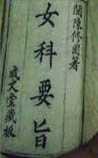 閩陳修園著
女科要旨
咸文堂藏板